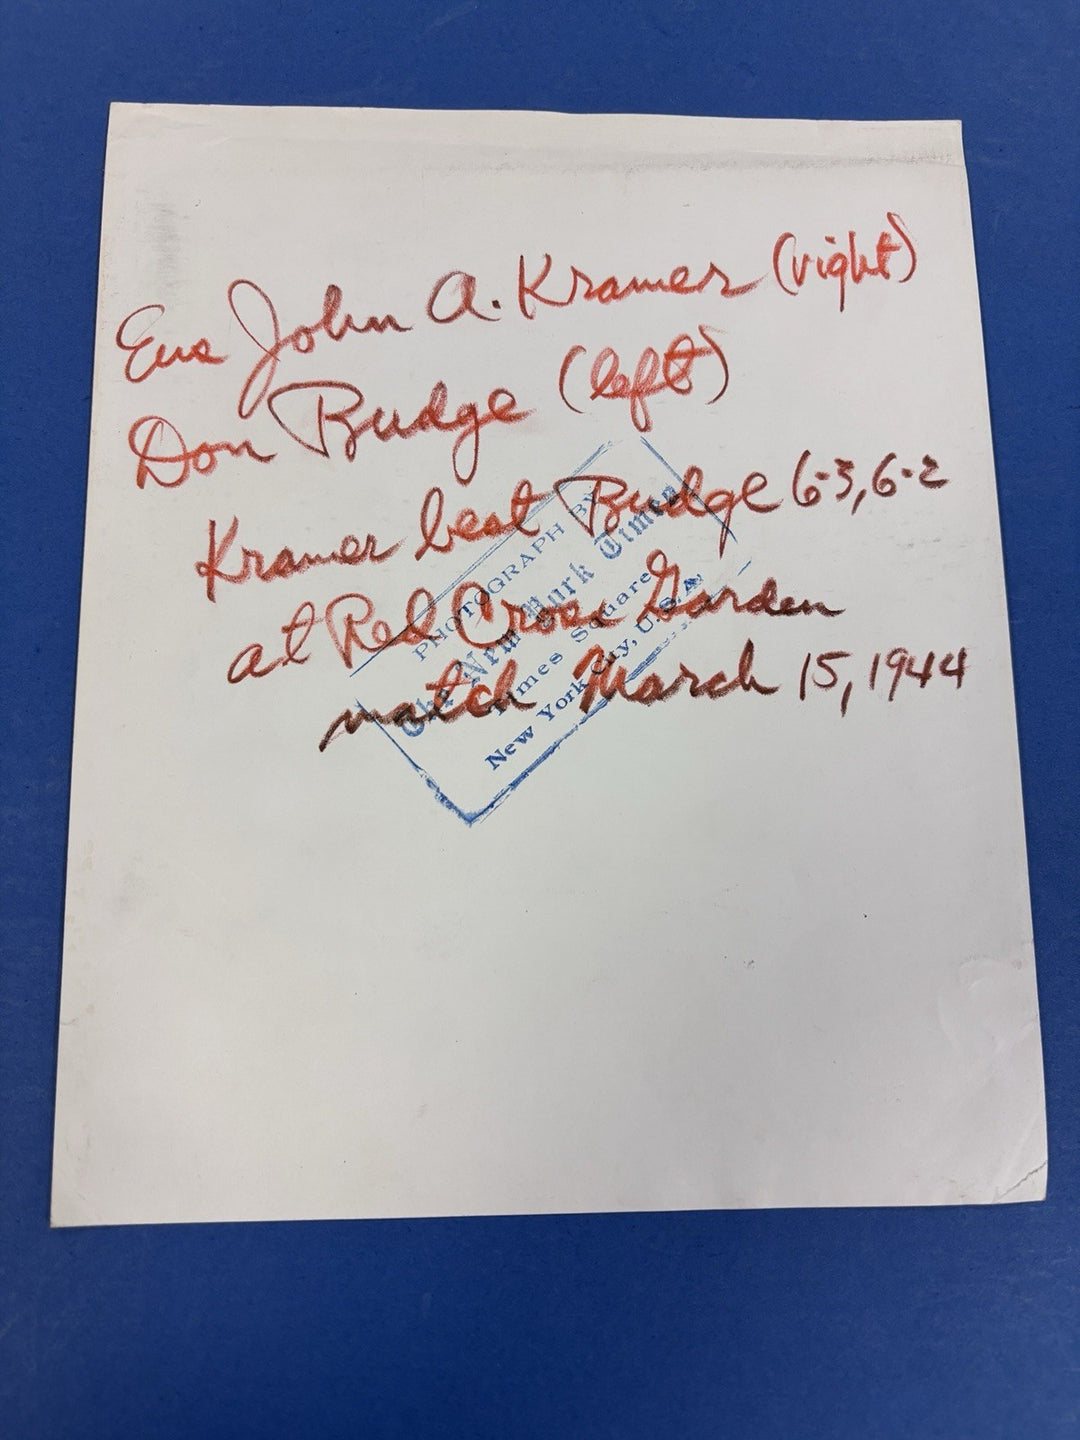 Ens John A. Kramer (right)
Don Budge (left)
Kramer beat Budge 6-3, 6-2
at Red Cross Garden
match March 15, 1944
PHOTOGRAPH BY
The New York Times
Times Square
New York City, U.S.A.